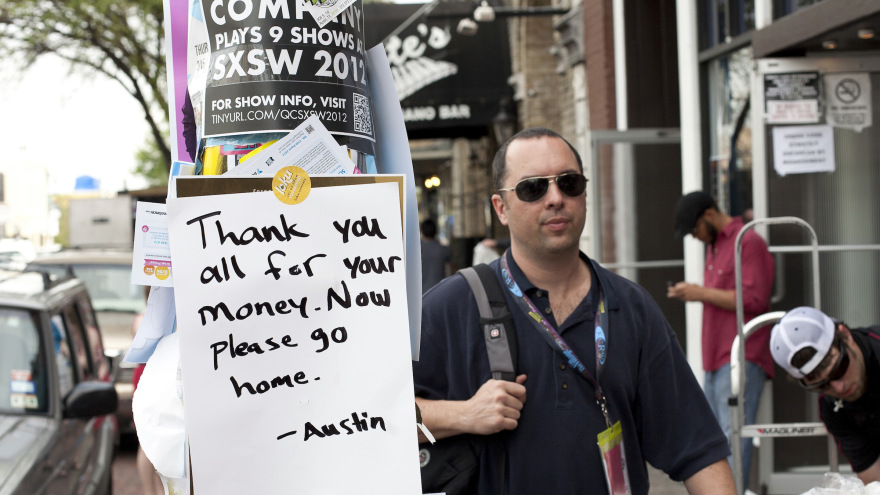 COMPANY
PLAYS 9 SHOWS AT
SXSW 2012
FOR SHOW INFO, VISIT
TINYURL.COM/QCSXSW2012
Thank you
all for your
money. Now
please go
home.
- Austin
PIANO BAR
MAGLINER